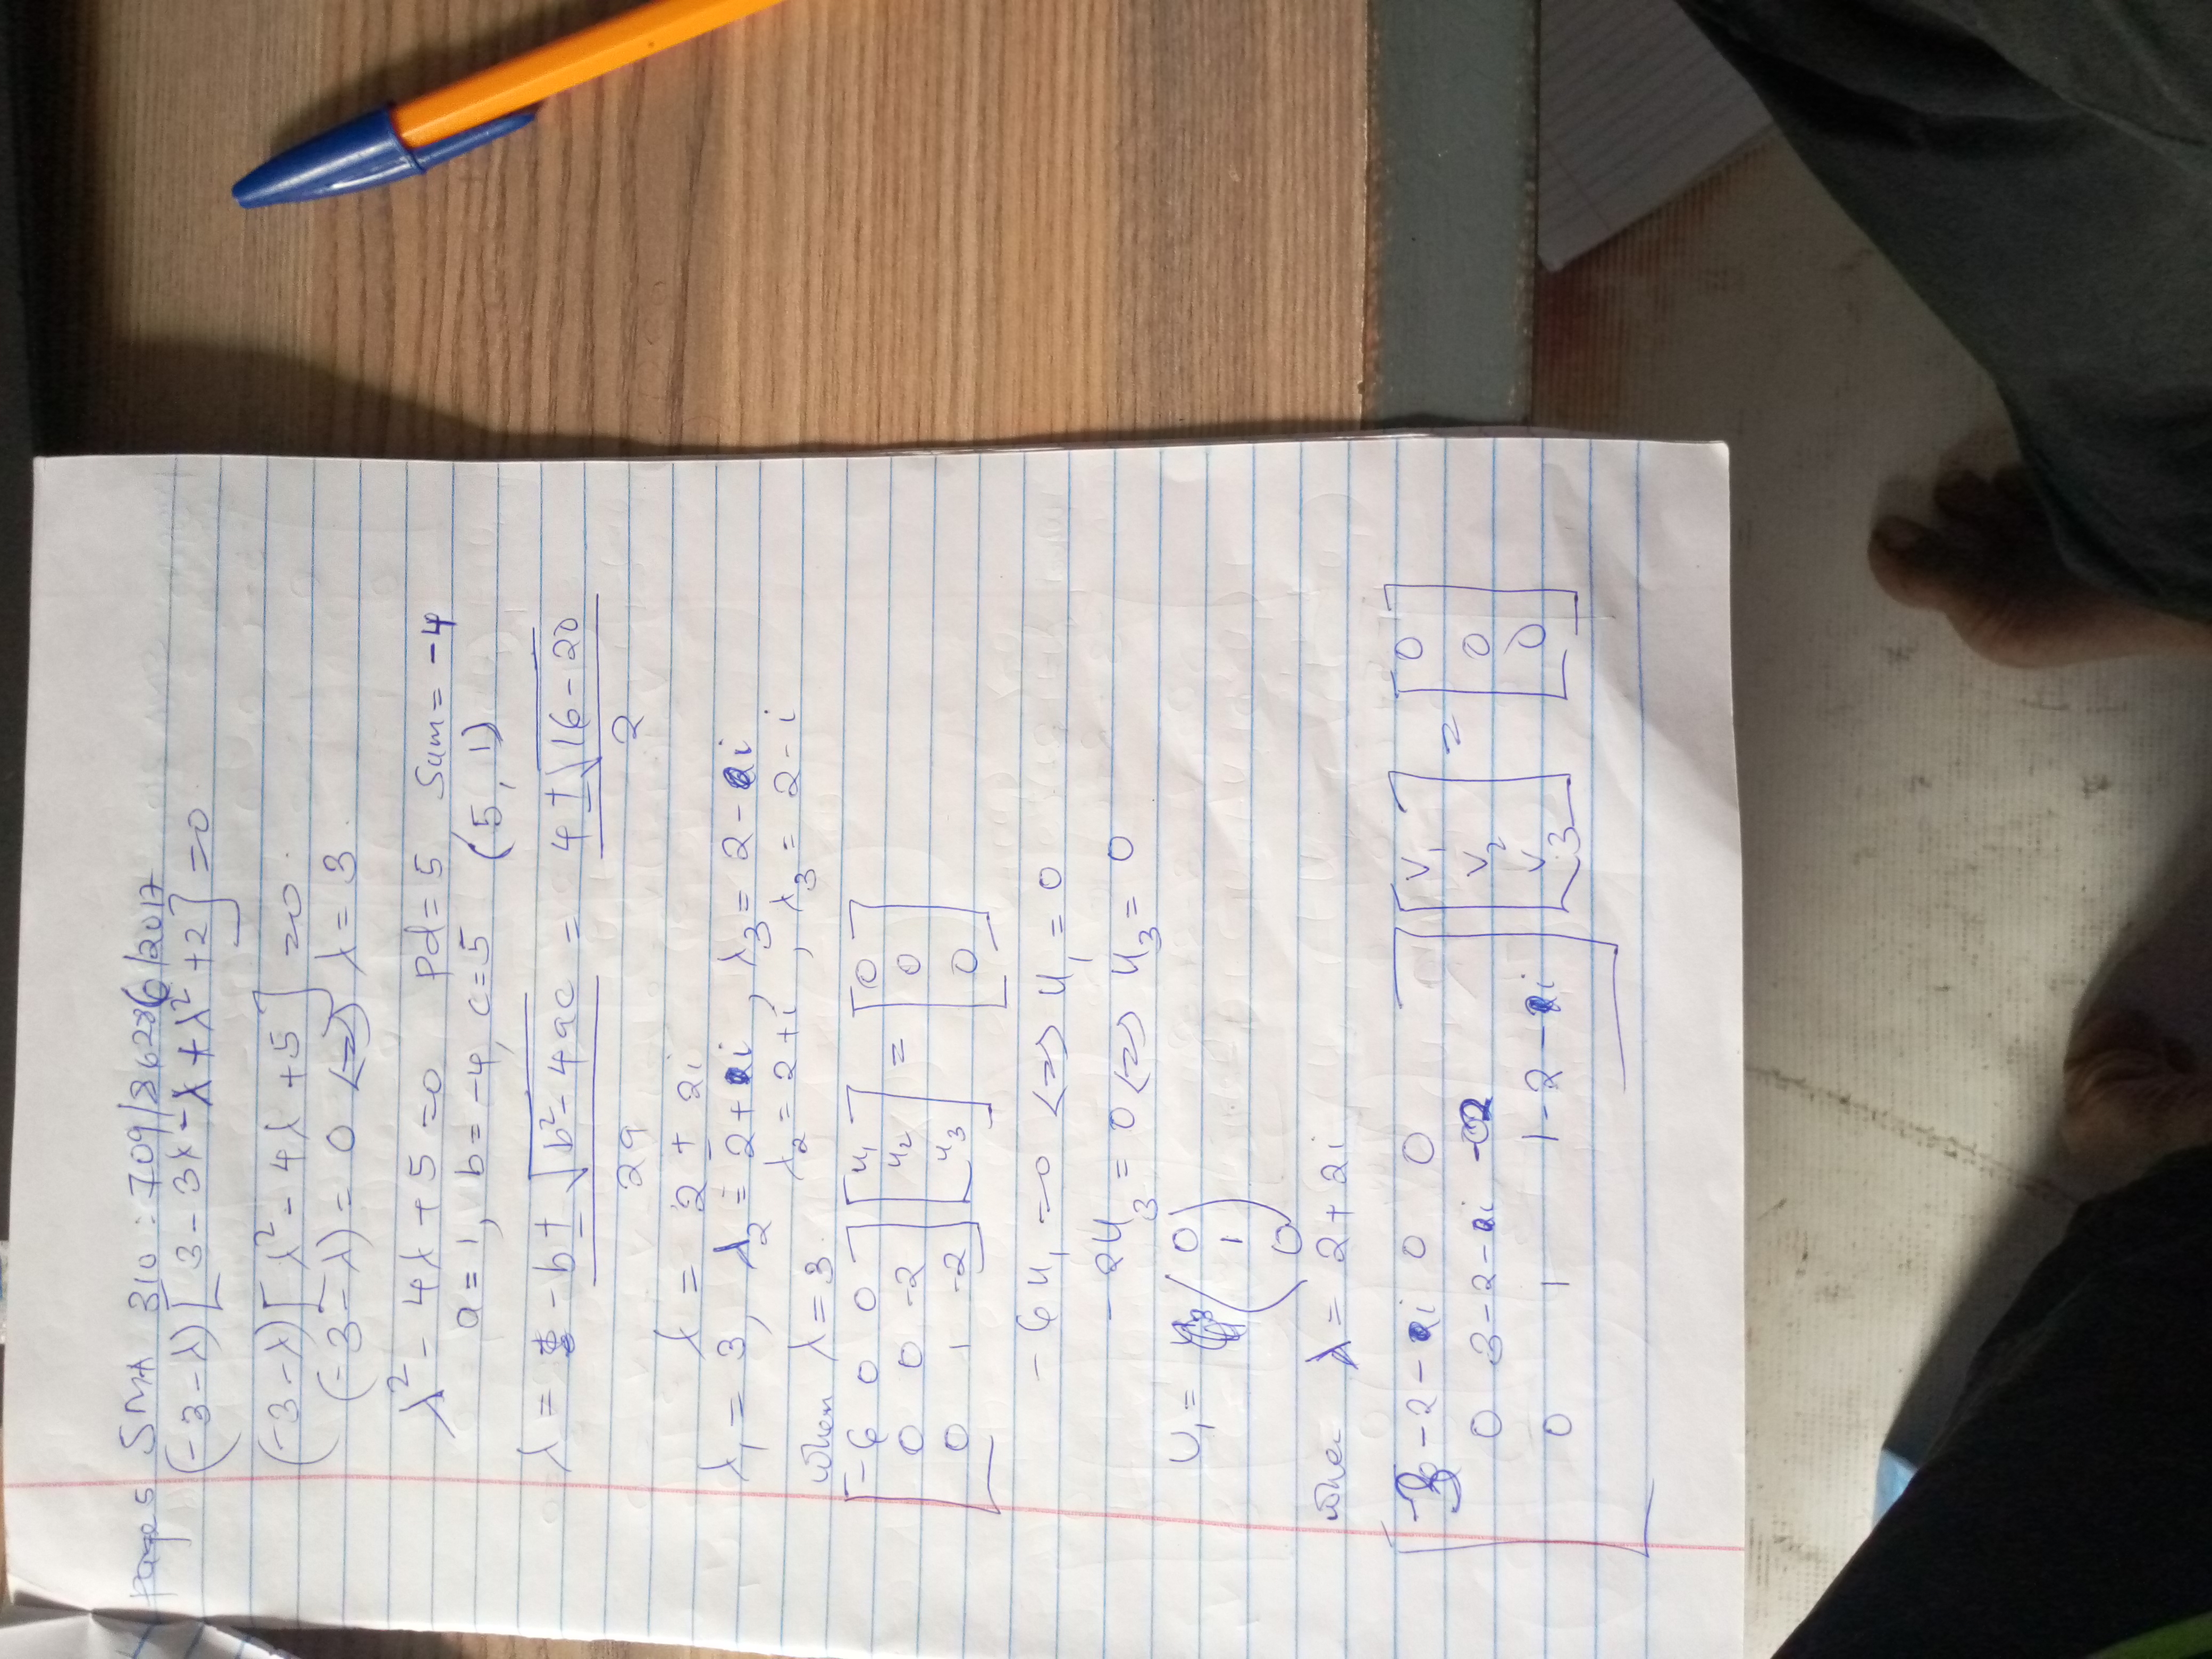 page 5 SMA 310 : 709/86286/2017
(-3-λ)[3-3λ-λ+λ²+2]=0
(-3-λ)[λ²-4λ+5]=0.
(-3-λ)=0 <=> λ=3.
λ²-4λ+5=0 Pd=5 Sum=-4
a=1, b=-4, c=5 (5, 1)
λ = -b±√b²-4ac = 4±√16-20
2a 2
λ = 2 ± 2i
λ₁=3, λ₂=2+i, λ₃=2-i
λ₂=2+i, λ₃=2-i
when λ=3
[-6 0 0] [u₁] = [0]
[0 0 -2] [u₂] [0]
[0 1 -2] [u₃] [0]
-6u₁=0 <=> u₁=0
-2u₃=0 <=> u₃=0
U₁= (0
1
0)
when λ=2+2i
[-3-2-i 0 0] [V₁] = [0]
[0 3-2-i -2] [V₂] [0]
[0 1 1-2-i] [V₃] [0]